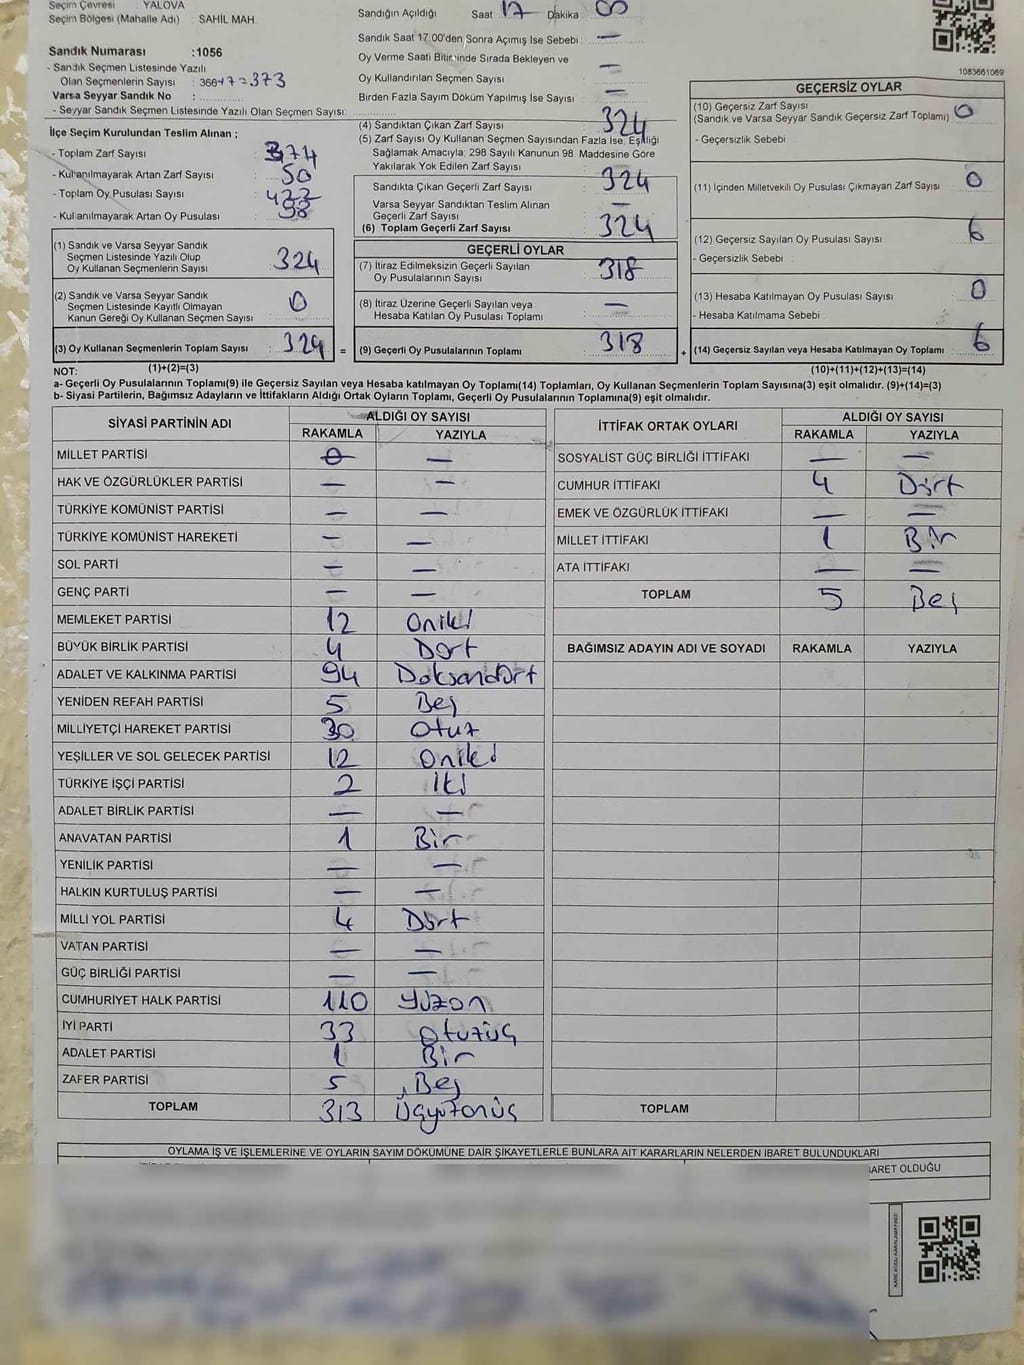 Seçim Çevresi : YALOVA
Seçim Bölgesi (Mahalle Adı) : SAHİL MAH.
Sandık Numarası :1056
- Sandık Seçmen Listesinde Yazılı
Olan Seçmenlerin Sayısı : 366+7=373
Varsa Seyyar Sandık No :
- Seyyar Sandık Seçmen Listesinde Yazılı Olan Seçmen Sayısı:
İlçe Seçim Kurulundan Teslim Alınan ;
- Toplam Zarf Sayısı : 374
- Kullanılmayarak Artan Zarf Sayısı : 50
- Toplam Oy Pusulası Sayısı :
- Kullanılmayarak Artan Oy Pusulası : 98
(1) Sandık ve Varsa Seyyar Sandık
Seçmen Listesinde Yazılı Olup
Oy Kullanan Seçmenlerin Sayısı : 324
(2) Sandık ve Varsa Seyyar Sandık
Seçmen Listesinde Kayıtlı Olmayan
Kanun Gereği Oy Kullanan Seçmen Sayısı : 0
(3) Oy Kullanan Seçmenlerin Toplam Sayısı : 324 =
(1)+(2)=(3)
Sandığın Açıldığı Saat 17 Dakika : 00
Sandık Saat 17:00'den Sonra Açımış İse Sebebi : —
Oy Verme Saati Bitiminde Sırada Bekleyen ve
Oy Kullandırılan Seçmen Sayısı : —
Birden Fazla Sayım Döküm Yapılmış İse Sayısı : —
(4) Sandıktan Çıkan Zarf Sayısı : 324
(5) Zarf Sayısı Oy Kullanan Seçmen Sayısından Fazla İse, Eşitliği
Sağlamak Amacıyla; 298 Sayılı Kanunun 98. Maddesine Göre
Yakılarak Yok Edilen Zarf Sayısı :
Sandıkta Çıkan Geçerli Zarf Sayısı : 324
Varsa Seyyar Sandıktan Teslim Alınan
Geçerli Zarf Sayısı : —
(6) Toplam Geçerli Zarf Sayısı : 324
GEÇERLİ OYLAR
(7) İtiraz Edilmeksizin Geçerli Sayılan
Oy Pusulalarının Sayısı : 318
(8) İtiraz Üzerine Geçerli Sayılan veya
Hesaba Katılan Oy Pusulası Toplamı : —
(9) Geçerli Oy Pusulalarının Toplamı : 318 +
1083661069
GEÇERSİZ OYLAR
(10) Geçersiz Zarf Sayısı
(Sandık ve Varsa Seyyar Sandık Geçersiz Zarf Toplamı) : 0
- Geçersizlik Sebebi :
(11) İçinden Milletvekili Oy Pusulası Çıkmayan Zarf Sayısı : 0
(12) Geçersiz Sayılan Oy Pusulası Sayısı : 6
- Geçersizlik Sebebi :
(13) Hesaba Katılmayan Oy Pusulası Sayısı : 0
- Hesaba Katılmama Sebebi :
(14) Geçersiz Sayılan veya Hesaba Katılmayan Oy Toplamı : 6
(10)+(11)+(12)+(13)=(14)
NOT:
a- Geçerli Oy Pusulalarının Toplamı(9) ile Geçersiz Sayılan veya Hesaba katılmayan Oy Toplamı(14) Toplamları, Oy Kullanan Seçmenlerin Toplam Sayısına(3) eşit olmalıdır. (9)+(14)=(3)
b- Siyasi Partilerin, Bağımsız Adayların ve İttifakların Aldığı Ortak Oyların Toplamı, Geçerli Oy Pusulalarının Toplamına(9) eşit olmalıdır.
SİYASİ PARTİNİN ADI ALDIĞI OY SAYISI
RAKAMLA YAZIYLA
MİLLET PARTİSİ 0 —
HAK VE ÖZGÜRLÜKLER PARTİSİ — —
TÜRKİYE KOMÜNİST PARTİSİ — —
TÜRKİYE KOMÜNİST HAREKETİ — —
SOL PARTİ — —
GENÇ PARTİ — —
MEMLEKET PARTİSİ 12 Oniki
BÜYÜK BİRLİK PARTİSİ 4 Dört
ADALET VE KALKINMA PARTİSİ 94 Doksandört
YENİDEN REFAH PARTİSİ 5 Beş
MİLLİYETÇİ HAREKET PARTİSİ 30 Otuz
YEŞİLLER VE SOL GELECEK PARTİSİ 12 Oniki
TÜRKİYE İŞÇİ PARTİSİ 2 İki
ADALET BİRLİK PARTİSİ — —
ANAVATAN PARTİSİ 1 Bir
YENİLİK PARTİSİ — —
HALKIN KURTULUŞ PARTİSİ — —
MİLLİ YOL PARTİSİ 4 Dört
VATAN PARTİSİ — —
GÜÇ BİRLİĞİ PARTİSİ — —
CUMHURİYET HALK PARTİSİ 110 Yüzon
İYİ PARTİ 33 Otuzüç
ADALET PARTİSİ 1 Bir
ZAFER PARTİSİ 5 Beş
TOPLAM 313 Üçyüzonüç
İTTİFAK ORTAK OYLARI ALDIĞI OY SAYISI
RAKAMLA YAZIYLA
SOSYALİST GÜÇ BİRLİĞİ İTTİFAKI — —
CUMHUR İTTİFAKI 4 Dört
EMEK VE ÖZGÜRLÜK İTTİFAKI — —
MİLLET İTTİFAKI 1 Bir
ATA İTTİFAKI — —
TOPLAM 5 Beş
BAĞIMSIZ ADAYIN ADI VE SOYADI RAKAMLA YAZIYLA
TOPLAM
OYLAMA İŞ VE İŞLEMLERİNE VE OYLARIN SAYIM DÖKÜMÜNE DAİR ŞİKAYETLERLE BUNLARA AİT KARARLARIN NELERDEN İBARET BULUNDUKLARI
BARET OLDUĞU
KARE KODU KARALAMAYINIZ!